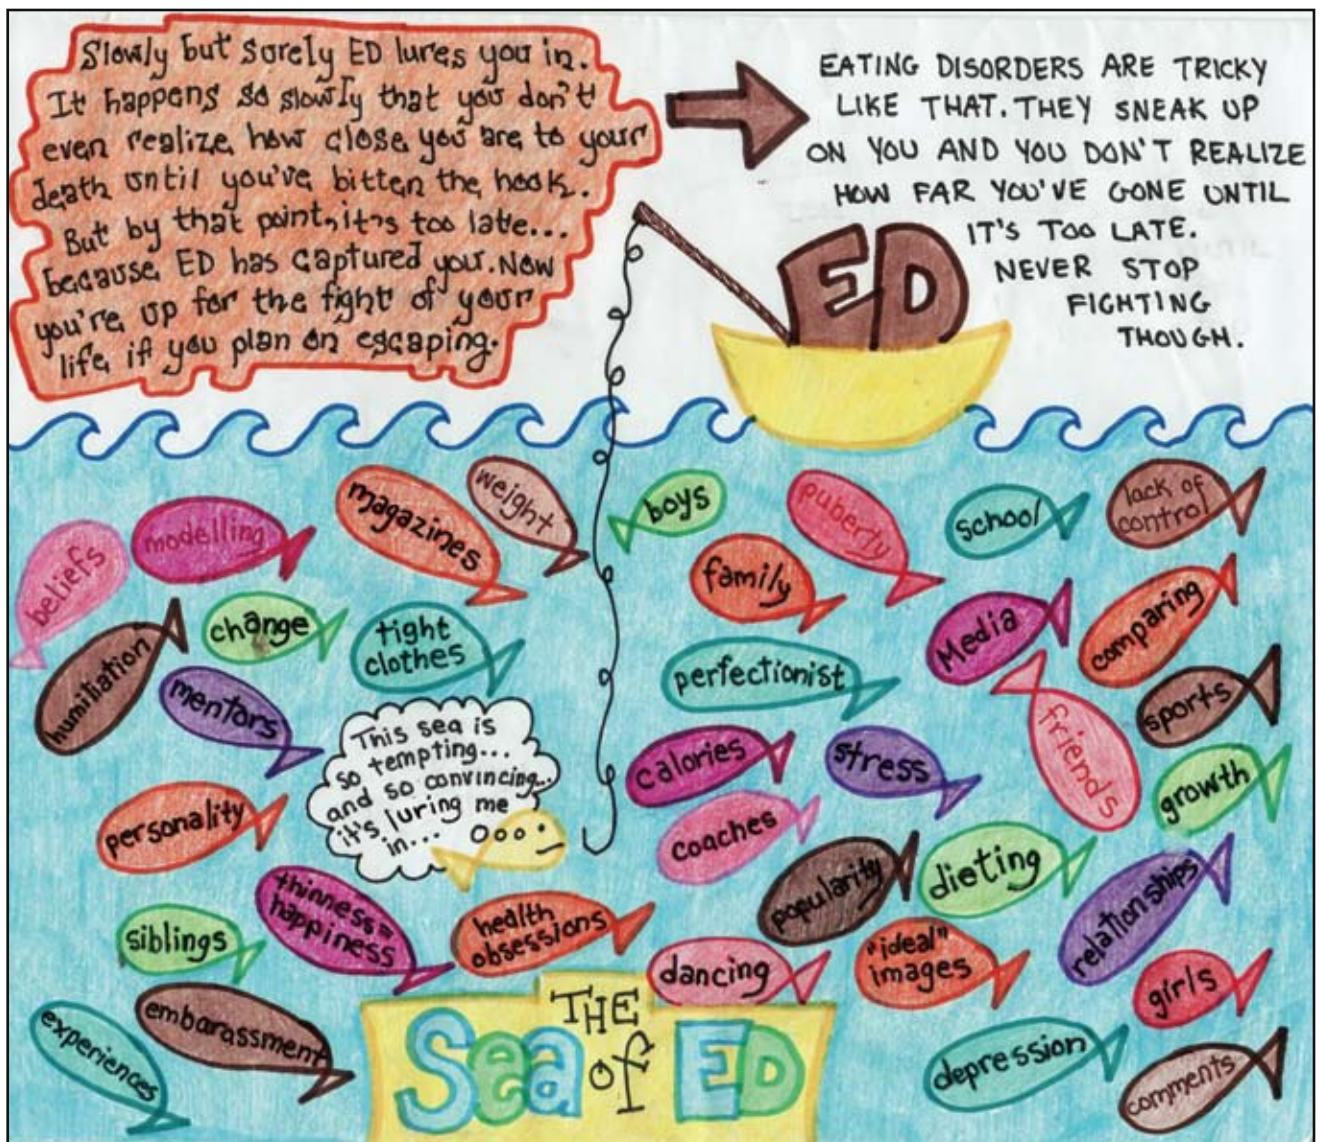 Slowly but surely ED lures you in.
It happens so slowly that you don't
even realize how close you are to your
death until you've bitten the hook.
But by that point, it's too late...
because ED has captured you. Now
you're up for the fight of your
life, if you plan on escaping.
EATING DISORDERS ARE TRICKY
LIKE THAT. THEY SNEAK UP
ON YOU AND YOU DON'T REALIZE
HOW FAR YOU'VE GONE UNTIL
IT'S TOO LATE.
NEVER STOP
FIGHTING
THOUGH.
ED
beliefs
modelling
magazines
weight
boys
puberty
school
lack of
control
humiliation
change
tight
clothes
family
Media
comparing
mentors
perfectionist
friends
sports
This sea is
so tempting...
and so convincing...
it's luring me
in...
calories
stress
growth
personality
coaches
popularity
dieting
relationships
siblings
thinness=
happiness
health
obsessions
dancing
"ideal"
images
girls
experiences
embarassment
THE
Sea of ED
depression
comments